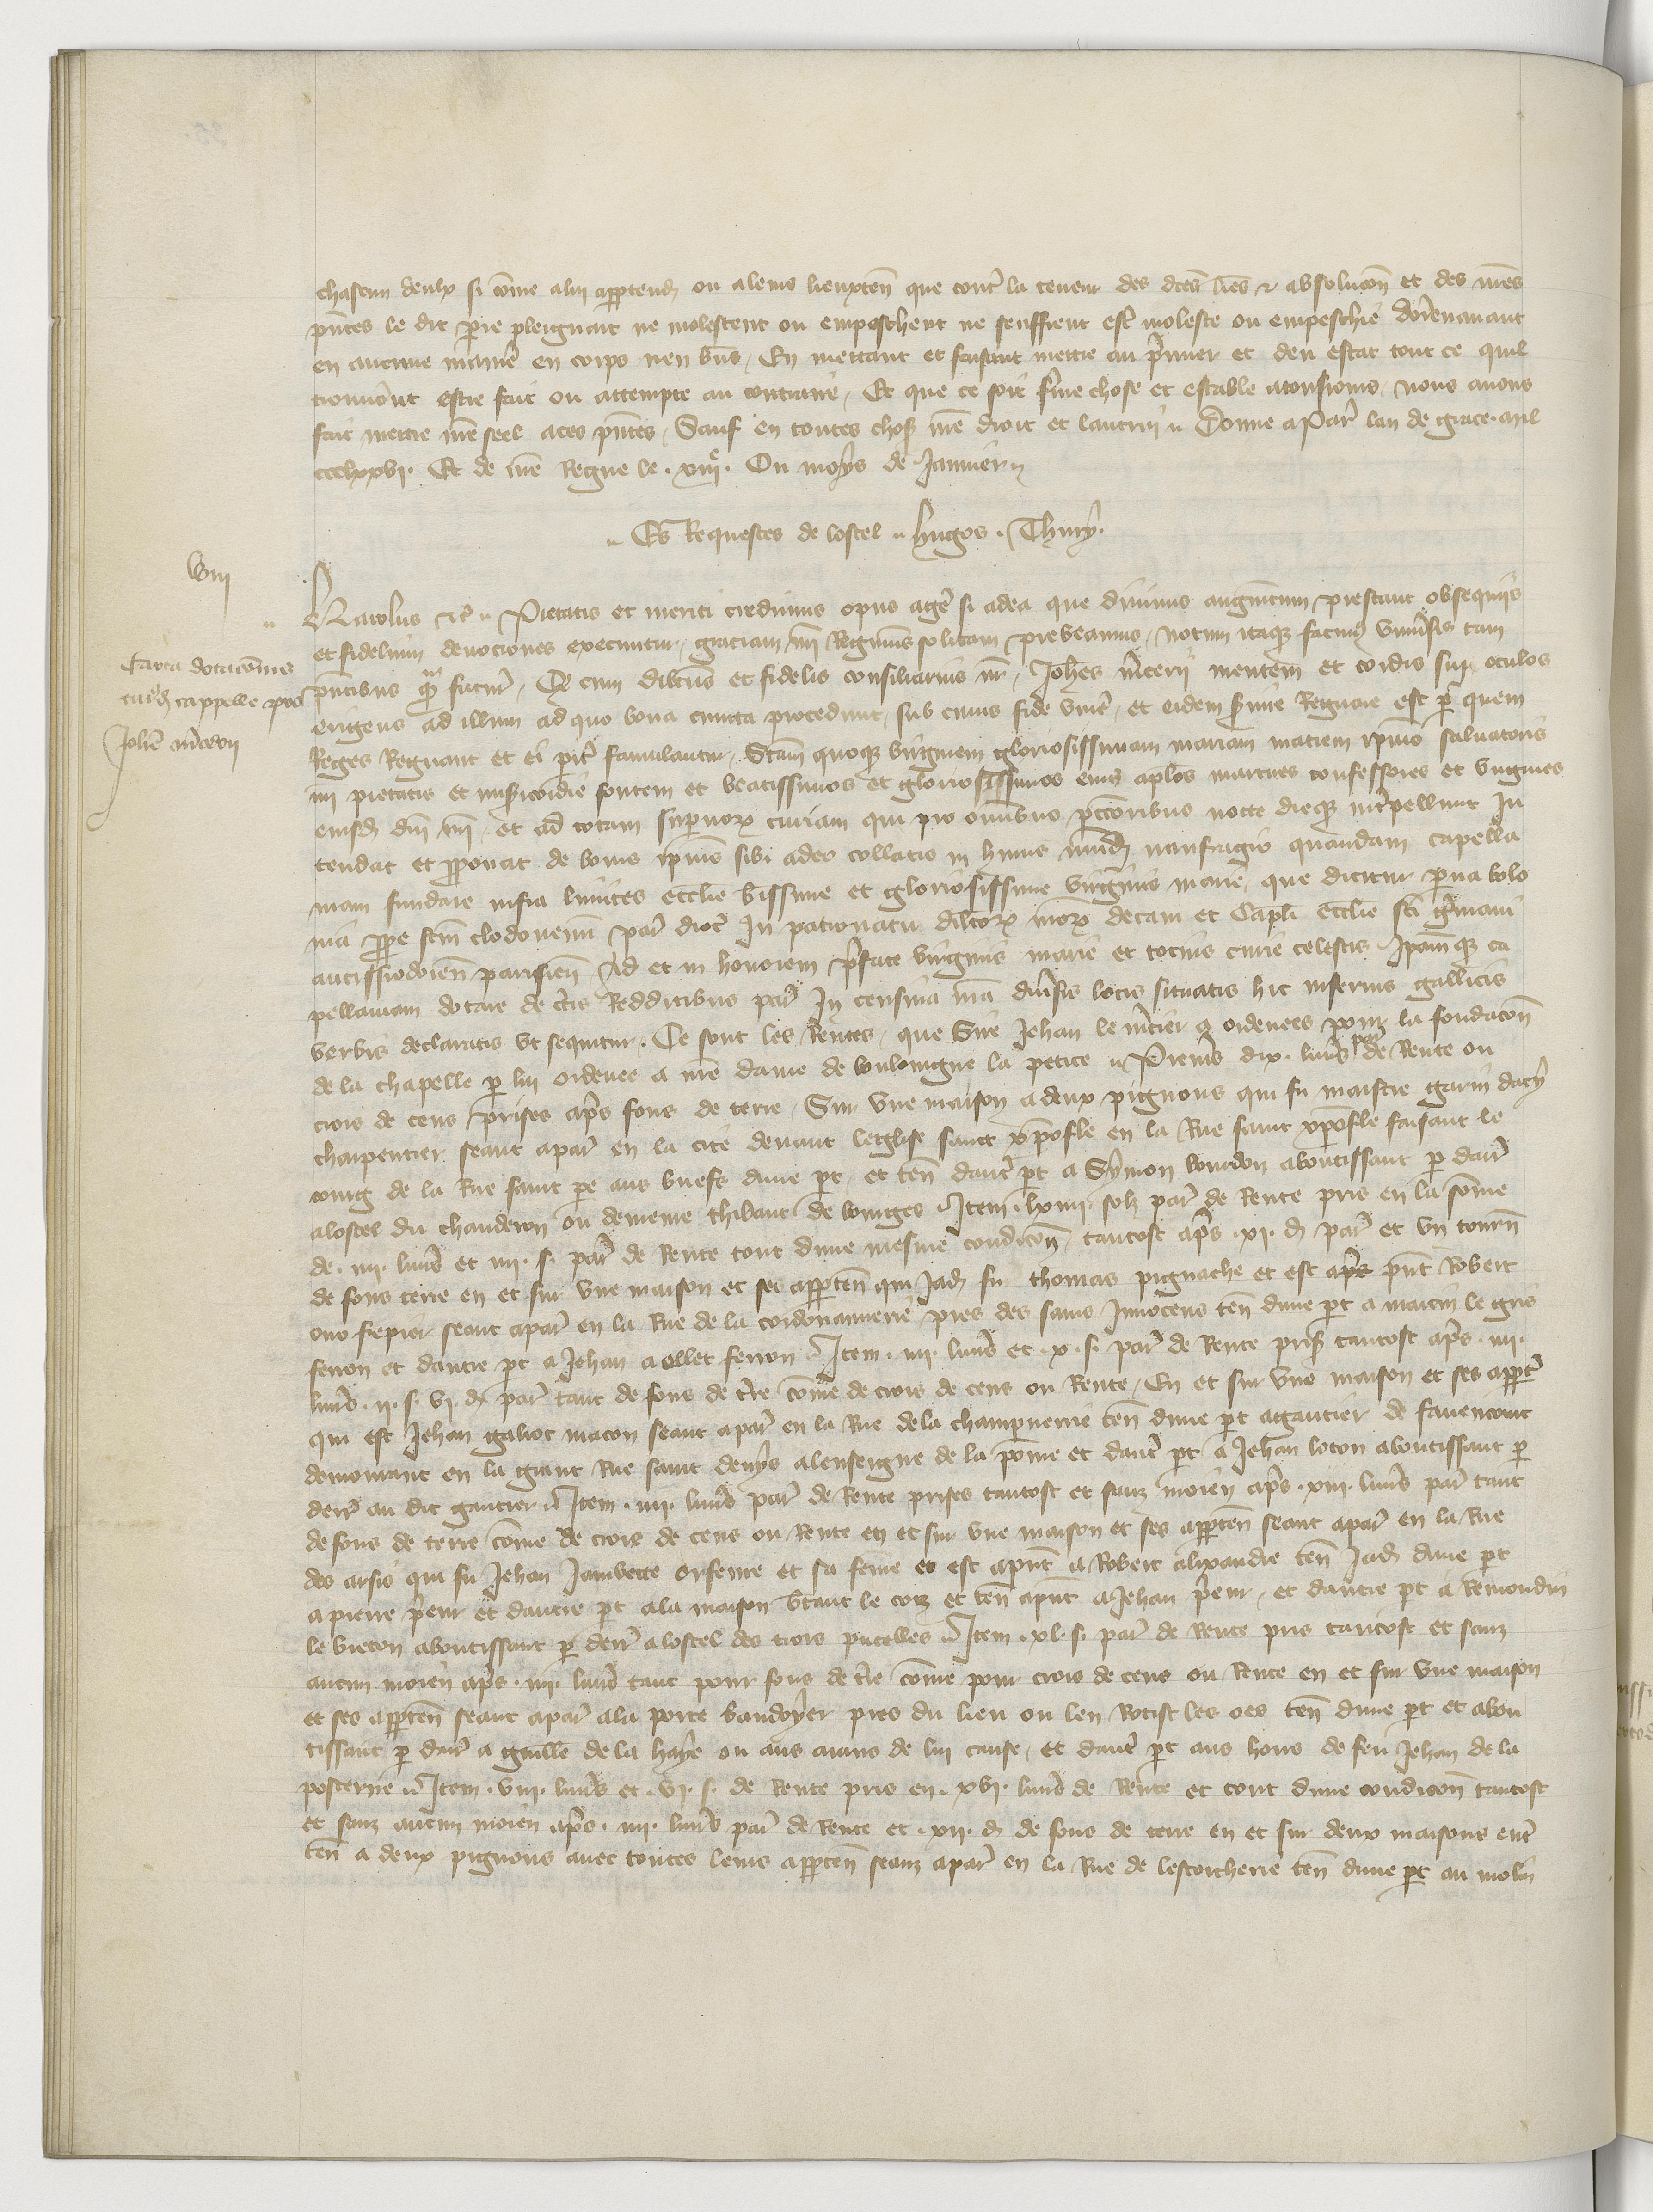 chascun deulx si cõme a lui apptend ou a leurs lieuxteñ que contˀ la teneur des dces lres & absolucoñ et des nres
pñtes le dit pere pleignart ne molestent ou empeschent ne seuffrent estˀ moleste ou empeschie dorenavant
en aucune maniẽ en corps nen biens / En mettant et faisant mettre au pmier et deu estat tout ce quil
trouveront estre fait ou attempte au contraire / Et que ce soit ferme chose et estable a tousiours / nous avons
fait mettre nre seel a ces pñtes / Sauf en toutes choses nre droit et lautrui // Donne a Par̃ lan de grace mil
ccclxxvi. Et de nre Regne le xiiie. Ou moys de Janvier //
// Es Requestes de lostel // hugos . Thiury .
viii
Karolus &c // Pietatis et meriti credimus opus agerˀ si ad ea que divinis augmentum prestant obsequiis
et fidelium devociones exequntur / graciam nr̃i Regiminis solitam prebeamus / notum itaqȝ facimus universis tam
Carta dotacõnis
cuiusd cappelle pro
Johẽ mˀcerii
pñtibus qȝ futurˀ / Qd cum dilcus et fidelis consiliarius nr / Johes mˀcerii mentem et cordis sui oculos
erigens ad illum ad quo bona cuncta procedunt / sub cuius fide vivere / et eidem servire Regnare est p quem
Reges Regnant et ei pitˀ famulantur / Scam quoqȝ virginem gloriosissimam mariam matrem xpiano salvatoris
nr̃i pietatis et misericordie fontem et beatissimos et gloriosissimos eius aplos martires confessores et virgines
eiusd dñi nr̃i / et ad totam supernorȝ curiam qui pro omnibus pctoribus nocte dieqȝ intˀpellunt In
tendat et pponat de bonis xpianis sibi a deo collatis in huius mundi naufragio quandam capella
niam fundare infra limites ecclie bissime et gloriosissime virginis marie / que dicitur parva bolo
nia ppe scm clodoveum par̃ dioc In patronatu dilcorȝ nrorȝ decani et Capli Ecclie sci germani
autissiodoreñ parisieñ / Ad et in honorem pˀfate virginis marie et tocius curie celestis Ipamqȝ ca
pellaniam dotare de cˀtis Redditibus par̃ In censiva nra divˀsis locis situatis hic inferius gallicis
verbis declaratis ut sequitur . Ce sont les Rentes / que Sire Jehan le mˀcier a ordenees pour la fondacoñ
de la chapelle p lui ordenee a nre dame de bouloingne la petite // Premiers dix livrˀs par̃ de Rente ou
crois de cens prises apˀs fons de terre / Sur une maison a deux pignons qui fu maistre garin dacy
charpentier seant a par̃ en la cite devant leglise saint xpofle en la Rue saint xpofle faisant le
coing de la Rue saint pe aus buefs dune pt / et teñ dautˀ pt a Symon bourdon aboutissant p darˀ
a lostel du chauderon ou demeure thibaut de bourges // Item . lxiiii. solz par̃ de Rente pris en la somme
de . iiii. livrˀs et iiii. s. par̃ de Rente tout dune mesme condicoñ / tantost apˀs . xi. d par̃ et un tourñ
de fons terre en et sur une maison et ses apptẽn qui jad fu thomas pignache et est apˀs pñt Robert
ono frepier seant a par̃ en la Rue de la cordouannerie pres des sains Innocens teñ dune pt a martin le gris
feron et dautre pt a Jehan aollet feron // Item . iiii. livrˀs et . x. s. par̃ de Rente prisȝ tantost apˀs . iiii.
livrˀs . ii. s. vi. d par̃ tant de fons de tˀre cõme de crois de cens ou Rente / En et sur une maison et ses apptˀ
qui est Jehan galiot macon seant a par̃ en la Rue de la champverrie teñ dune pt a gautier de faiencourt
demourant en la grant Rue saint denys a lenseigne de la põme et dautˀ pt a Jehan loton aboutissant p
derˀ au dit gautier // Item . iiii. livrˀs par̃ de Rente prises tantost et sanz moien apˀs . xiii. livrˀs par̃ tant
de fons de terre cõme de crois de cens ou Rente en et sur une maison et ses apptẽn seant a par̃ en la Rue
des arsis qui fu Jehan Jambette orfevre et sa feme et est apñt a Robert alixandre teñ jad dune pt
a pierre pˀeur et dautre pt a la maison bˀtaut le coȝ et teñ apñt a Jehan pˀeur / et dautre pt a Remondin
le breton aboutissant p derˀ a lostel des trois pucelles // Item . xl. s. par̃ de Rente pris tantost et sanz
aucun moien apˀs . iiii. livrˀs tant pour fons de tˀre cõme pour crois de cens ou Rente en et sur une maison
et ses apptẽn seant a par̃ a la porte baudoyer pres du lieu ou len Rotist les oes teñ dune pt et abou
tissant p darˀ a guille de la haye ou aus aians de lui cause / et dautˀ pt aus hoirs de feu Jehan de la
posterne // Item . viii. livrˀs et . vi. s. de Rente pris en . xvi. livrˀs de Rente et tout dune condicoñ tantost
et sanz aucun moien apˀs . iiii. livrˀs par̃ de Rente et . xii. d de fons de terre en et sur deux maisons entˀ
teñ a deux pignons avec toutes leurs apptẽn seanz a par̃ en la Rue de lescorcherie teñ dune pt au molin